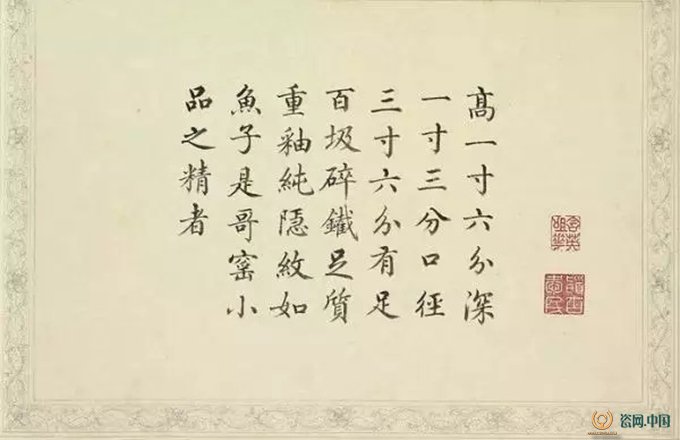 高一寸六分深
一寸三分口徑
三寸六分有足
百圾碎鐵足質
重釉純隱紋如
魚子是哥窰小
品之精者
含英咀華
瓷网.中国